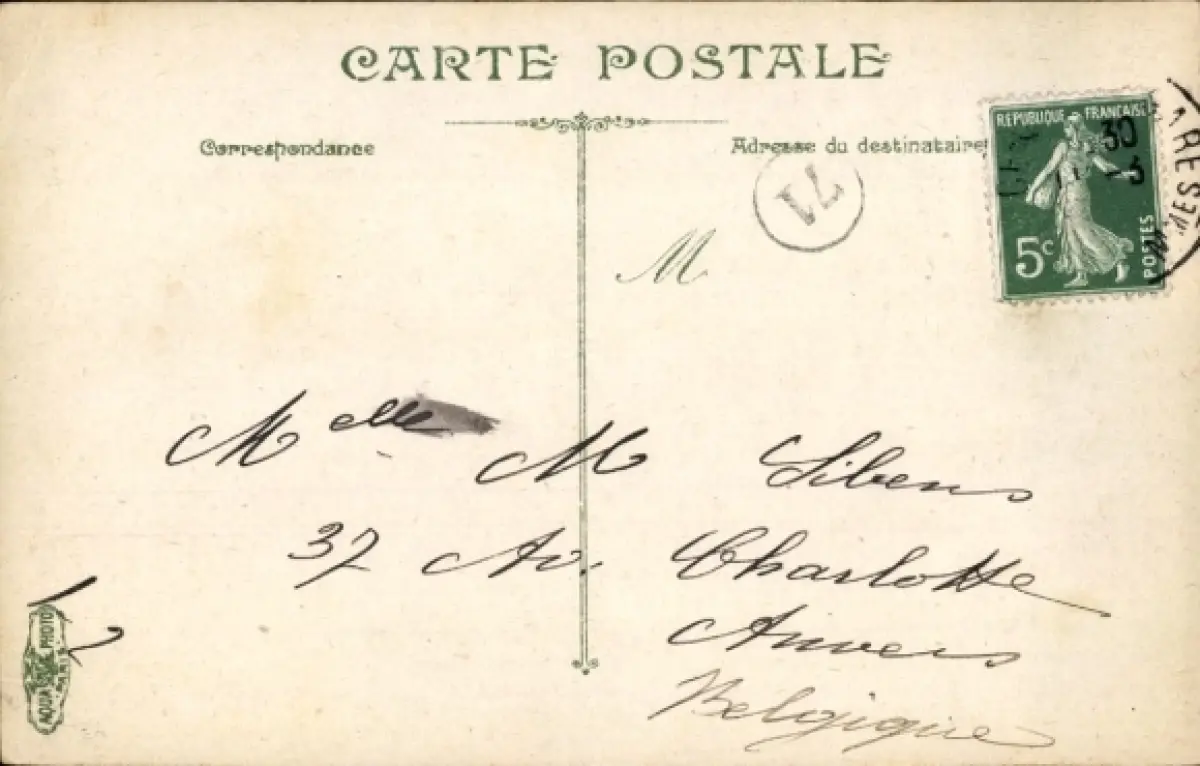 CARTE POSTALE
Correspondance
Adresse du destinataire
REPUBLIQUE FRANÇAISE
30
-3
5c
POSTES
71
M
Melle M Sibens
37 Av. Charlotte
Anvers
Belgique
PHOTO